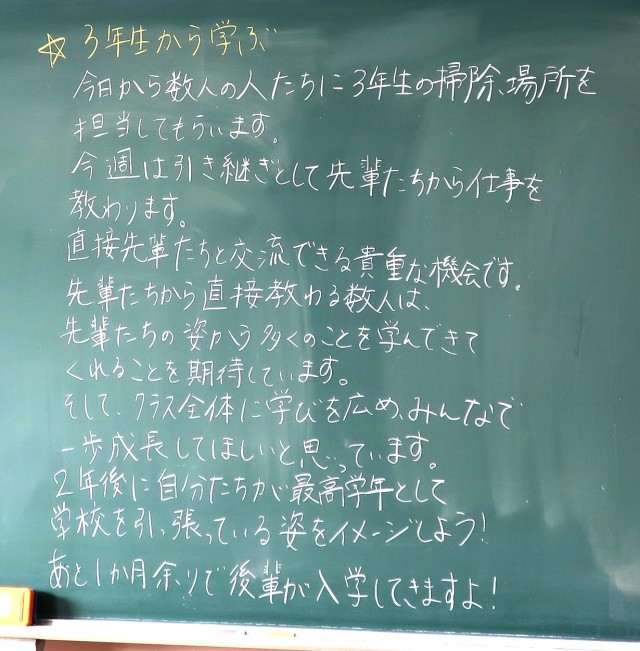 ☆3年生から学ぶ
今日から数人の人たちに3年生の掃除場所を
担当してもらいます。
今週は引き継ぎとして先輩たちから仕事を
教わります。
直接先輩たちと交流できる貴重な機会です。
先輩たちから直接教わる数人は、
先輩たちの姿から多くのことを学んできて
くれることを期待しています。
そして、クラス全体に学びを広め、みんなで
一歩成長してほしいと思っています。
2年後に自分たちが最高学年として
学校を引っ張っている姿をイメージしよう!
あと1か月余りで後輩が入学してきますよ!